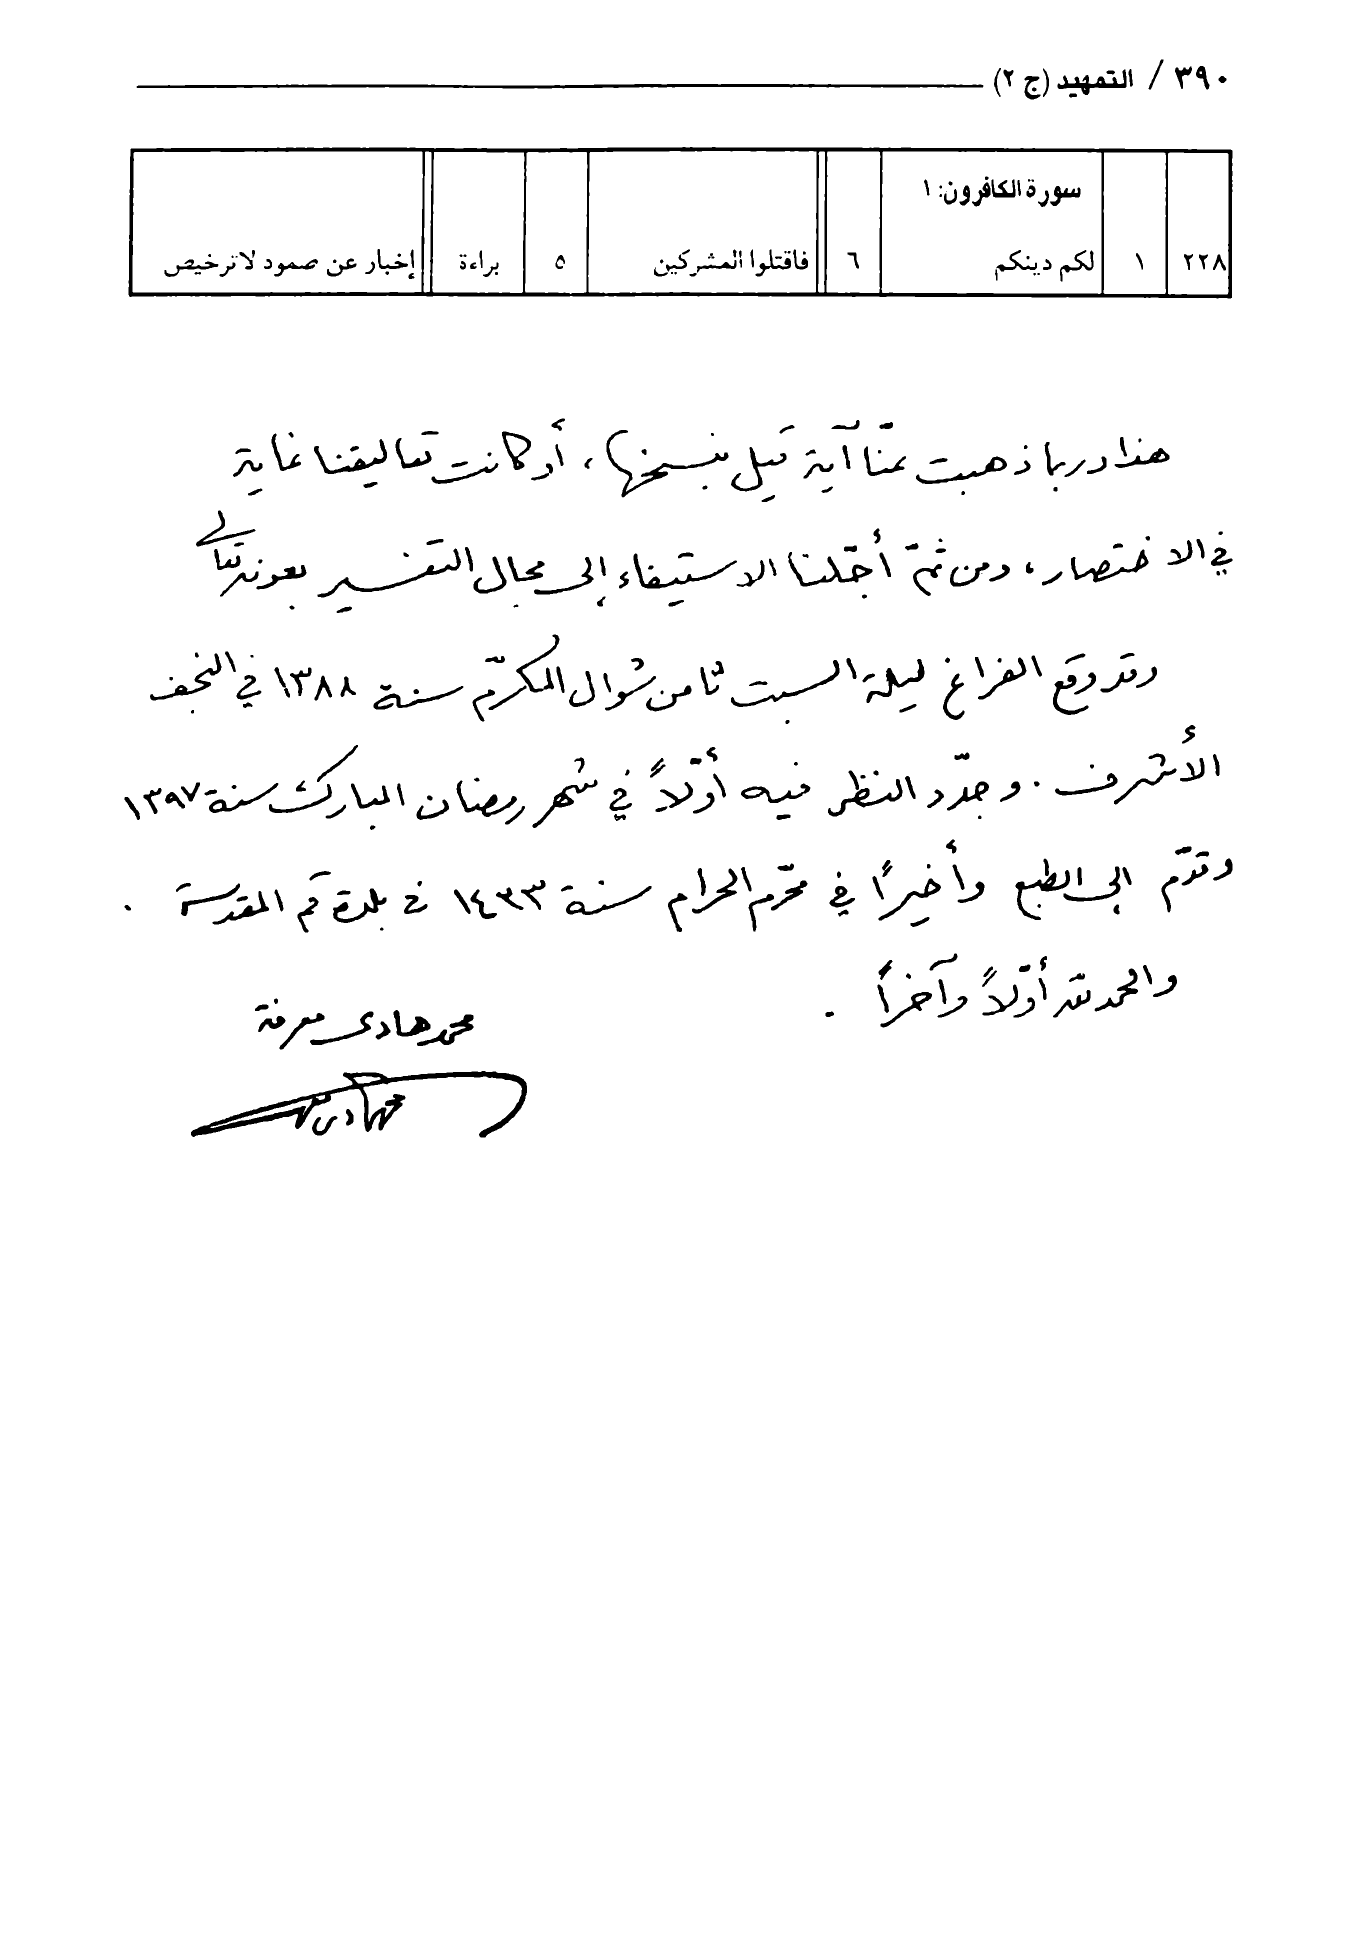 ٣٩٠ / التمهيد (ج ٢)
سورة الكافرون: ١
٢٢٨ ١ لكم دينكم ٦ فاقتلوا المشركين ٥ براءة إخبار عن صمود لا ترخيص
هذا وربما ذهبت عنّا آية قيل بنسخها، أو كانت تعاليقنا غاية
في الاختصار، ومن ثمّ أجّلنا الاستيفاء إلى مجال التفسير بعونه تعالى
وقد وقع الفراغ ليلة السبت ثامن شوال المكرّم سنة ١٣٨٨ في النجف
الأشرف. وجدّد النظر فيه أوّلاً في شهر رمضان المبارك سنة ١٣٩٧
وقدّم الى الطبع وأخيراً في محرّم الحرام سنة ١٤٣٣ في بلدة قم المقدسة.
والحمد لله أوّلاً وآخراً.
محمد هادي معرفة